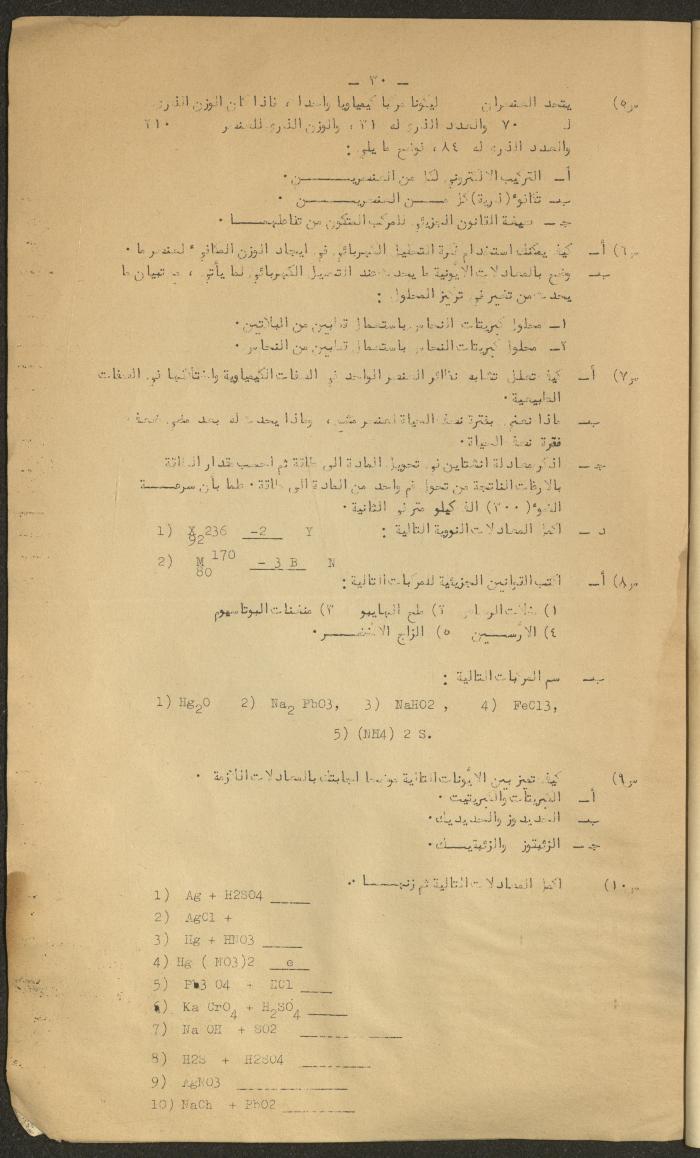 — ٣٠ —
س٥) يتحد العنصران ليكونا مركبا كيمياويا واحدا ، فاذا كان الوزن الذري
لـ ٧٠ والعدد الذري له ٣١ ، والوزن الذري للعنصر ٢١٠
والعدد الذري له ٨٤ ، فوضح ما يلي :
أ — التركيب الالكتروني لكل من العنصريـــن ٠
ب — تكافؤ (ذرية) كل مــن العنصريـــن ٠
جـ — صيغة القانون الجزيئي للمركب المتكون من تفاعلهمــا ٠
س٦) أ — كيف يمكنك استخدام فكرة التحليل الكهربائي في ايجاد الوزن المكافيء لعنصر ما ٠
ب — وضح بالمعادلات الايونية ما يحدث عند التحليل الكهربائي لما يأتي ، مع تبيان ما
يحدث من تغير في تركيز المحلول :
١— محلول كبريتات النحاس باستعمال قطبين من البلاتين ٠
٢— محلول كبريتات النحاس باستعمال قطبين من النحاس ٠
س٧) أ — كيف تعلل تشابه نظائر العنصر الواحد في الصفات الكيمياوية واختلافها في الصفات
الطبيعية ٠
ب — ماذا نعني بفترة نصف الحياة لعنصر مشع ، وماذا يحدث له بعد مضي نصف
فترة نصف الحياة ٠
جـ — اذكر معادلة انشتاين في تحويل المادة الى طاقة ثم احسب مقدار الطاقة
بالارغات الناتجة من تحول غم واحد من المادة الى طاقة ٠ علما بأن سرعــة
الضوء (٣٠٠) الف كيلو متر في الثانية ٠
د — اكمل المعادلات النووية التالية :
1) X 236 92 -2 Y
2) M 170 80 - 3 B N
س٨) أ — اكتب القوانين الجزيئية للمركبات التالية :
١) خلات الرصاص ٢) ملح الهايبو ٣) منغنات البوتاسيوم
٤) الارســين ٥) الزاج الاخضــر ٠
ب — سم المركبات التالية :
1) Hg2O 2) Na2 PbO3, 3) NaHO2 , 4) FeCl3,
5) (NH4) 2 S.
س٩) كيف تميز بين الايونات التالية موضحا اجابتك بالمعادلات اللازمة ٠
أ — الكبريتات والكبريتيت ٠
ب — الحديدوز والحديديك ٠
جـ — الزئبقوز والزئبقيــك ٠
س١٠) اكمل المعادلات التالية ثم زنهــا ٠
1) Ag + H2SO4 ____
2) AgCl +
3) Hg + HNO3 ____
4) Hg ( NO3)2 __e__
5) Pb3 O4 + HCl ____
6) Ka CrO4 + H2SO4 ____
7) Na OH + SO2 ____
8) H2S + H2SO4 ____
9) AgNO3 ____
10) NaCh + PbO2 ____